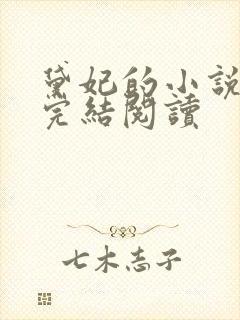 黛妃的小說
完結閱讀
七木志子